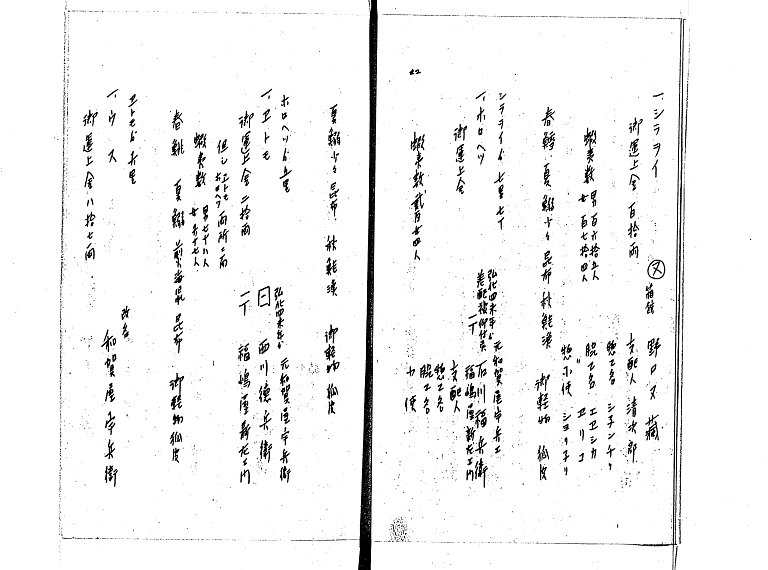 一、シラヲイ
箱館 野口又藏
御運上金百拾両
支配人 清次郎
蝦夷数 男百六拾五人
女百七拾四人
惣乙名
脇乙名 エコシカ
惣小使
春鱈 夏鰯少々 昆布 秋鮭漁 御軽物 狐皮
シラヲイゟ七里七丁
一、ホロヘツ
弘化四未年ゟ
元和賀屋宇兵エ
差配被仰付候
石川福兵衛
御運上金
福嶋屋新左エ門
支配人
惣乙名
脇乙名
小使
蝦夷数 貳百廿四人
夏鰯少々 昆布 秋鮭漁 御軽物 狐皮
ホロヘツゟ五里
一、ヱトモ
弘化四未年ゟ
元和賀屋宇兵衛
西川德兵衛
御運上金二拾両
福嶋屋新左エ門
但シ ヱトモ ホロヘツ 両所ニ而
蝦夷数 男七十八人
春鯡 夏鰯 煎海鼠 昆布 御軽物 狐皮
ヱトモゟ六里
一、ウス
改名
和賀屋宇兵衛
御運上金八拾七両